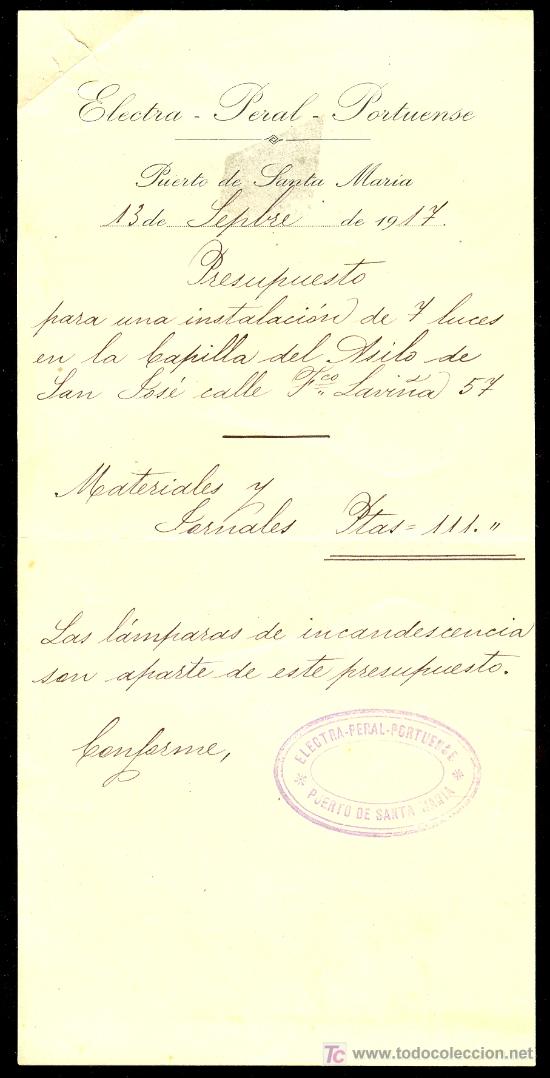 Electra - Peral - Portuense
Puerto de Santa Maria
13 de Sepbre de 1917.
Presupuesto
para una instalación de 7 luces
en la Capilla del Asilo de
San José calle Fco Laviña 57
Materiales y
Jornales Ptas = 111. "
Las lámparas de incandescencia
son aparte de este presupuesto.
Conforme,
ELECTRA-PERAL-PORTUENSE
* PUERTO DE SANTA MARIA *
TC www.todocoleccion.net